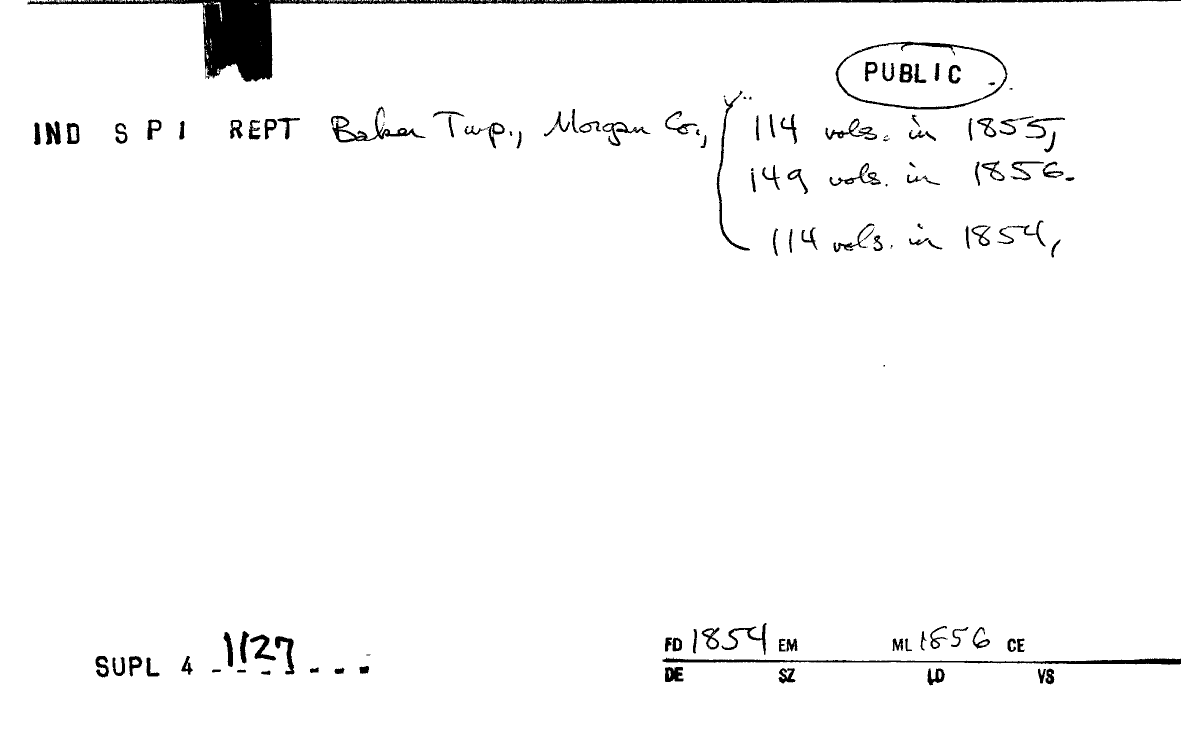 PUBLIC
IND S P I REPT Baker Twp., Morgan Co., 114 vols. in 1855,
149 vols. in 1856.
114 vols. in 1854,
SUPL 4 1127
FD 1854 EM ML 1856 CE
DE SZ LD VS